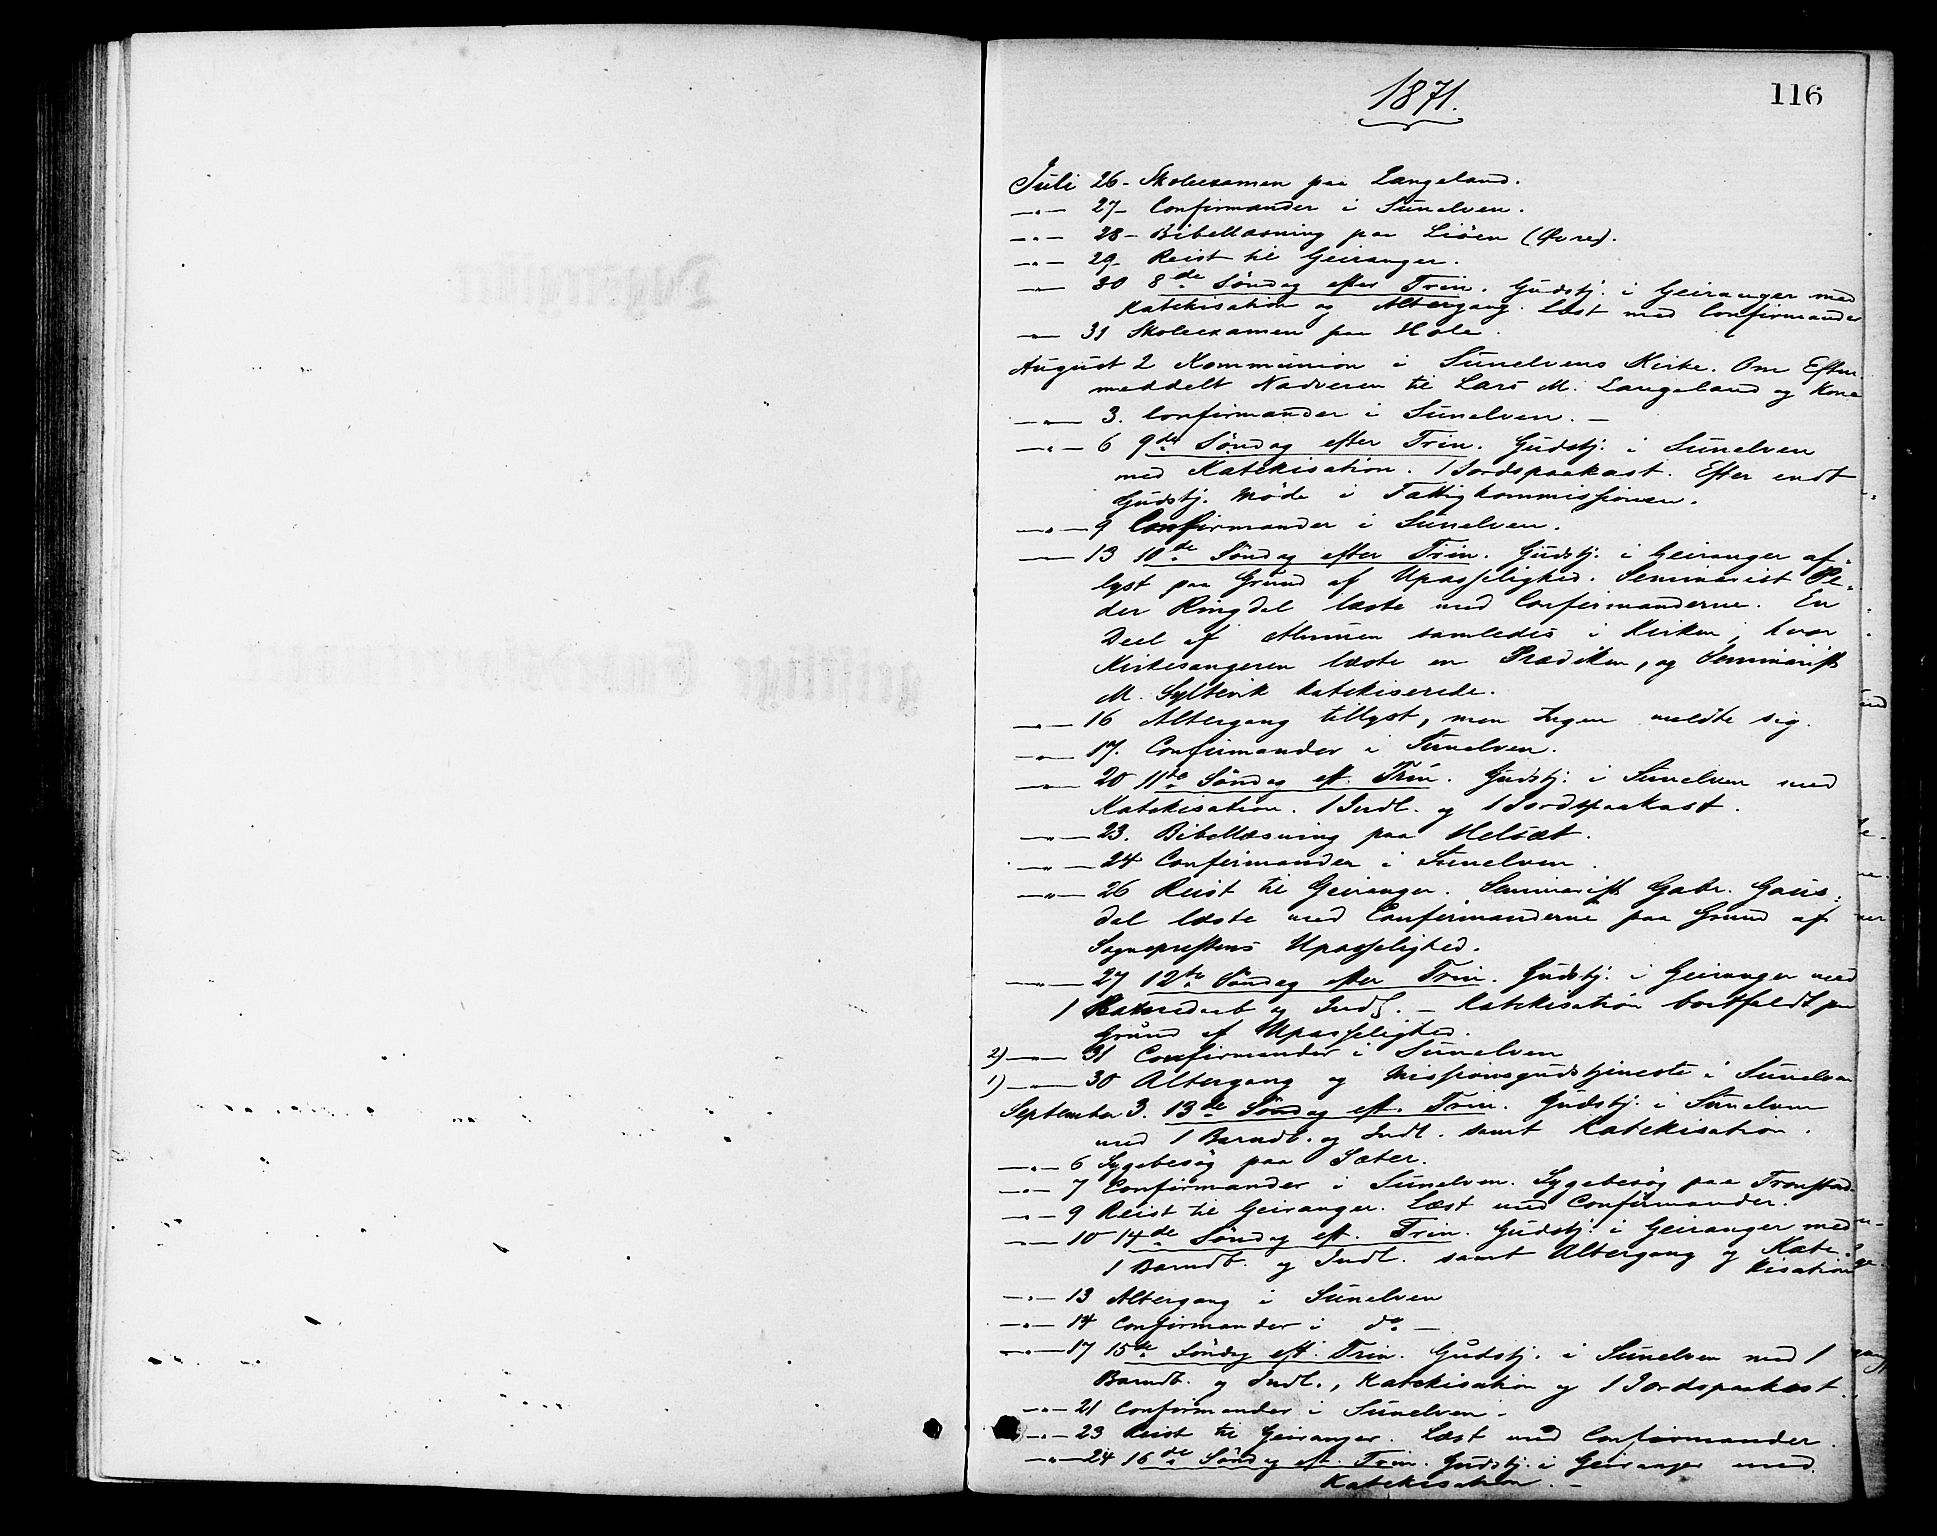 116
1871.
Juli 26 - Skoleexamen paa Langeland.
—"— 27 - Confirmander i Sunelven.
—"— 28 - Bibellæsning paa Liöen (Øvre).
—"— 29 - Reist til Geiranger.
—"— 30 8de Söndag efter Trin. Gudstj. i Geiranger med
Katekisation og Altergang. Læst med Confirmander
—"— 31 Skoleexamen paa Hole.
August 2 Kommunion i Sunelvens Kirke. Om Efterm.
meddelt Nadveren til Lars M. Langeland og Kone
—"— 3. Confirmander i Sunelven. —
—"— 6 9de Söndag efter Trin. Gudstj. i Sunelven
med Katekisation. 1 Jordspaakast. Efter endt
Gudstj. Möde i Fattigkommissionen.
—"— 9 Confirmander i Sunelven.
—"— 13 10de Söndag efter Trin. Gudstj. i Geiranger af-
lyst paa Grund af Upasselighed. Seminarist Pe-
der Ringdal læste med Confirmanderne. En
Deel af Almuen samledes i Kirken, hvor
Kirkesangeren læste en Prædiken, og Seminarist
M. Syltevik katekiserede.
—"— 16 Altergang tillyst, men Ingen meldte sig.
—"— 17. Confirmander i Sunelven.
—"— 20 11te Söndag eft. Trin. Gudstj. i Sunelven med
Katekisation. 1 Indl. og 1 Jordspaakast.
—"— 23. Bibellæsning paa Helsæt.
—"— 24 Confirmander i Sunelven.
—"— 26 Reist til Geiranger. Seminarist Gabr. Gaus-
dal læste med Confirmanderne paa Grund af
Sognepræstens Upasselighed.
—"— 27 12te Söndag efter Trin. Gudstj. i Geiranger med
1 og Indl. — Katekisation bortfaldt paa
Grund af Upasselighed.
2) —"— 31 Confirmander i Sunelven
1) —"— 30 Altergang og Missionsgudstjeneste i Sunelven
September 3. 13de Söndag eft. Trin. Gudstj. i Sunelven
med 1 Barndb. og Indl. samt Katekisation.
—"— 6 Sygebesög paa Sæter.
—"— 7 Confirmander i Sunelven. Sygebesög paa Tronstad.
—"— 9 Reist til Geiranger. Læst med Confirmander.
—"— 10 14de Söndag eft. Trin. Gudstj. i Geiranger med
1 Barndb. og Indl. samt Altergang og Kate-
kisation
—"— 13 Altergang i Sunelven
—"— 14 Confirmander i do —
—"— 17 15de Söndag eft. Trin. Gudstj. i Sunelven med 1
Barndb. og Indl., Katekisation og 1 Jordspaakast.
—"— 21 Confirmander i Sunelven.
—"— 23 Reist til Geiranger. Læst med Confirmander.
—"— 24 16de Söndag eft. Trin. Gudstj. i Geiranger med
Katekisation. —